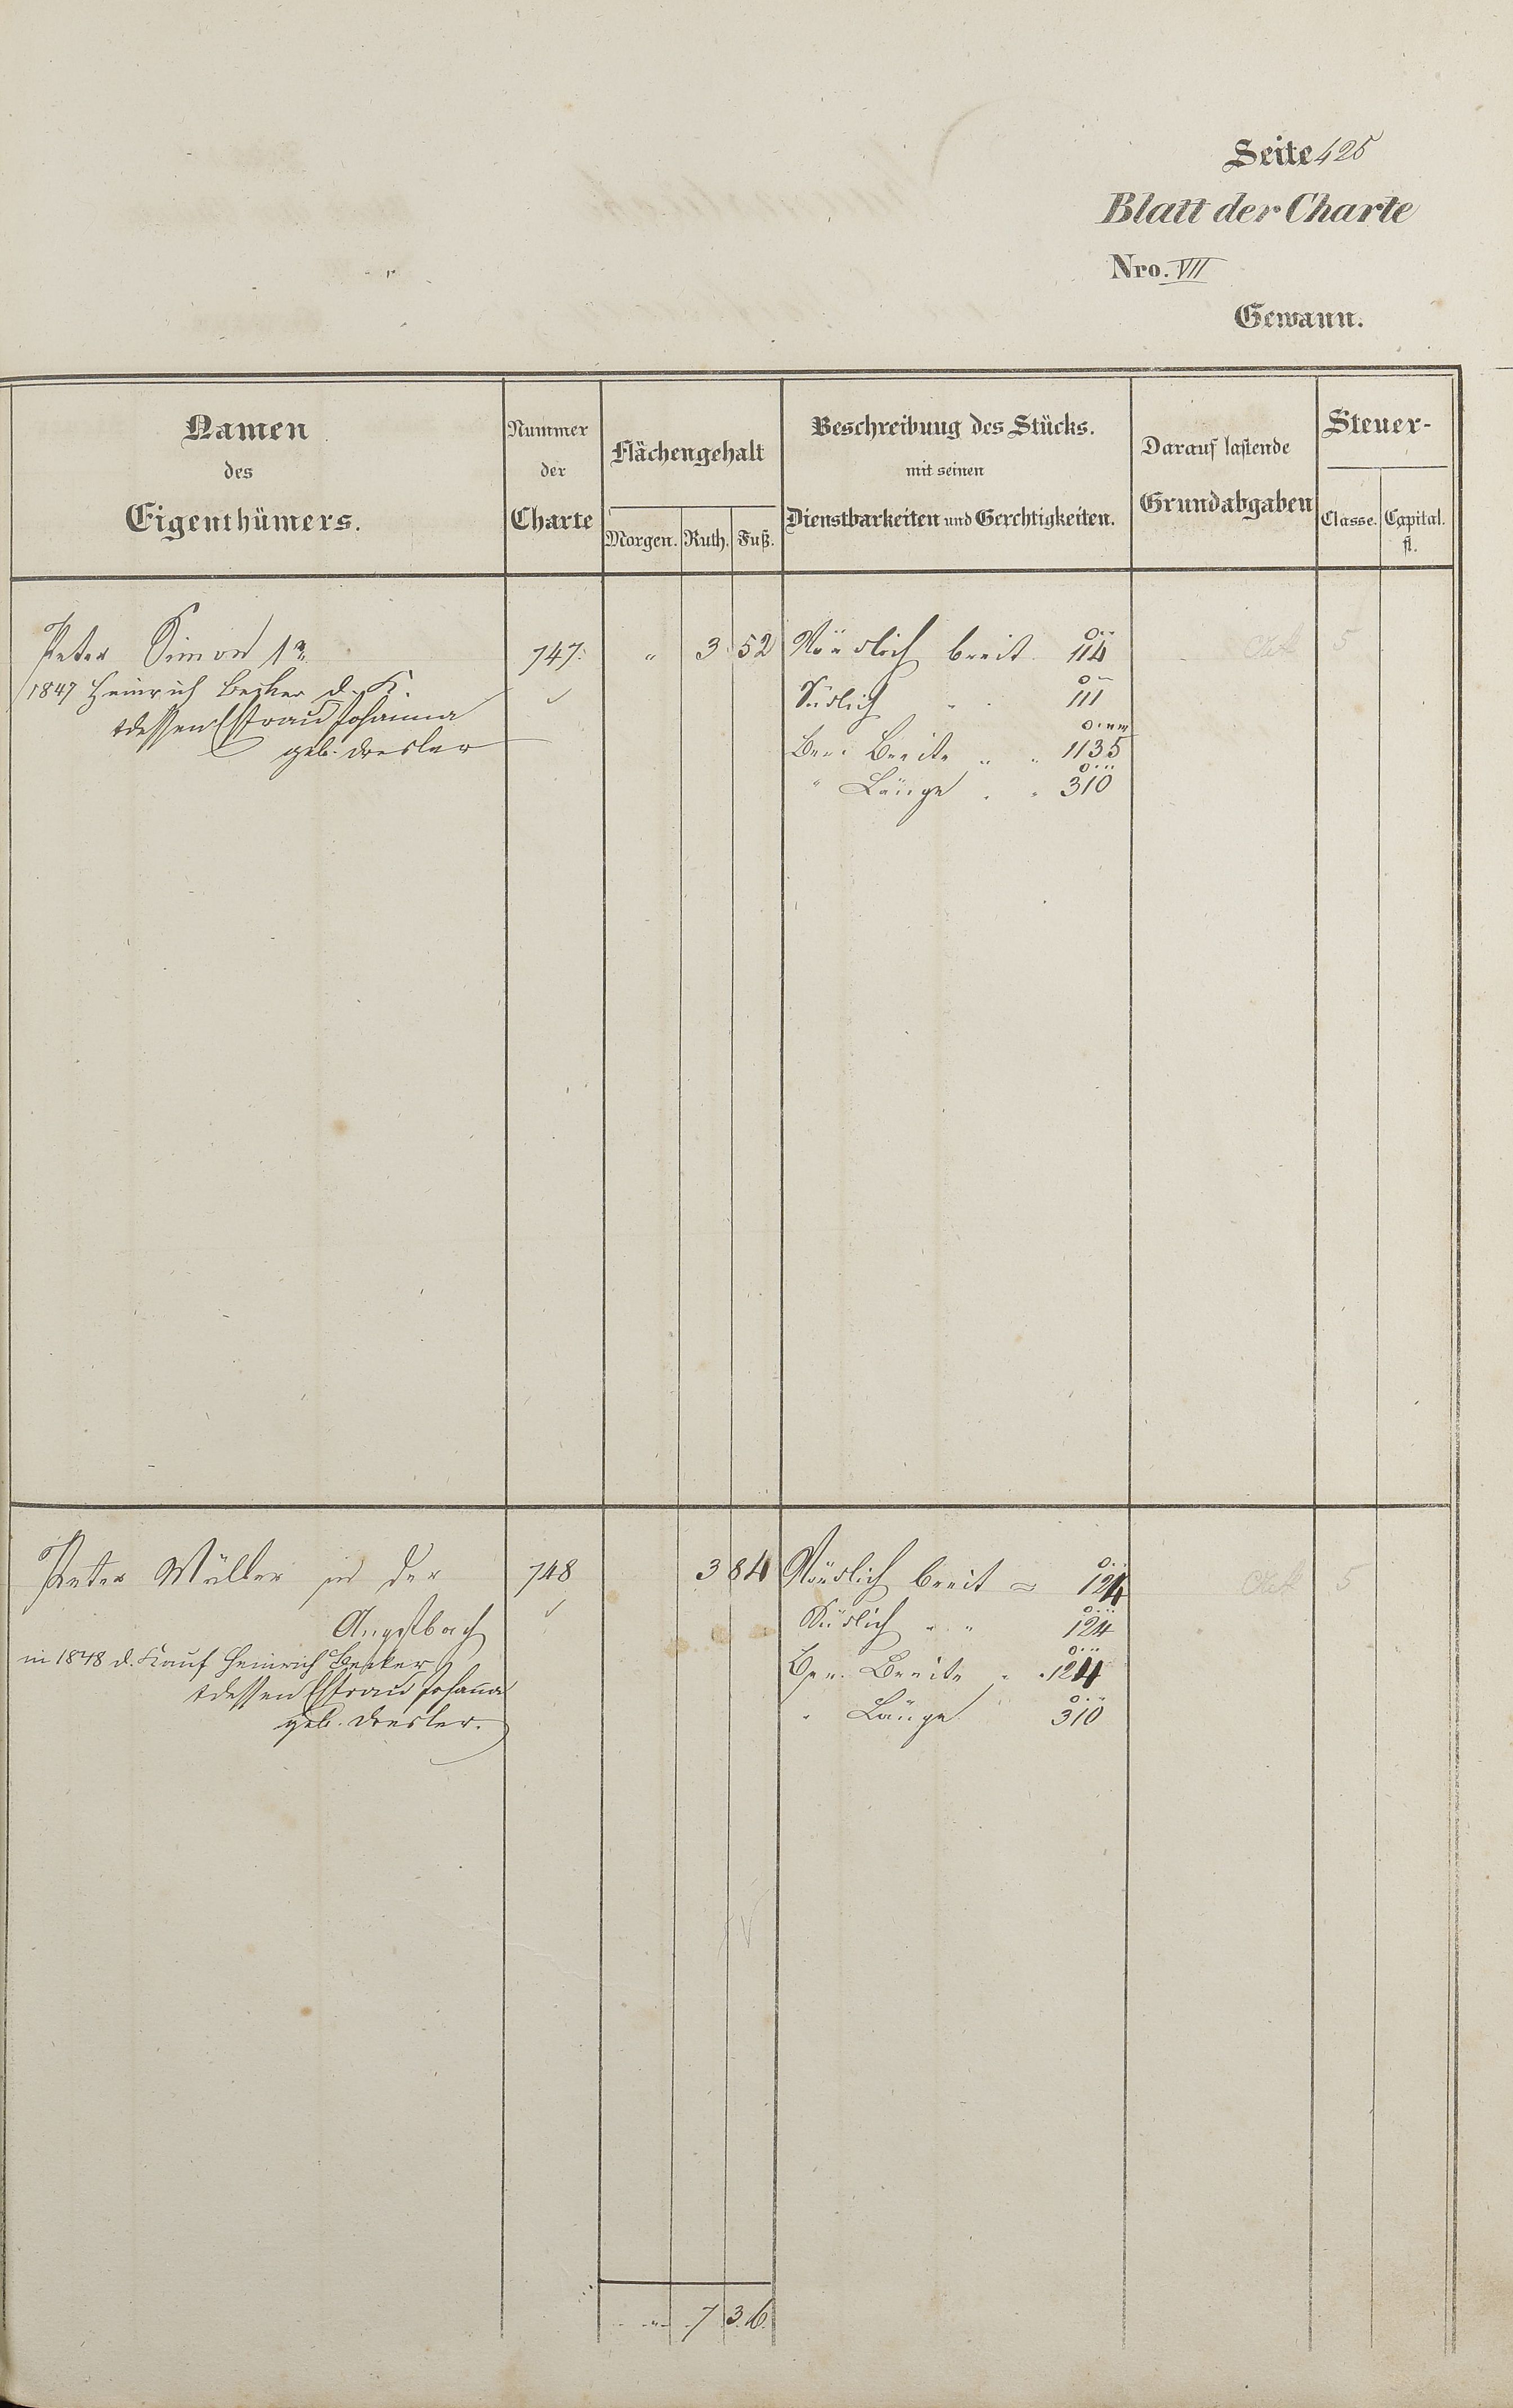 Seite 425
Blatt der Charte
Nro. VII
Gewann.
Namen des Eigenthümers.
Nummer der Charte
Flächengehalt
Morgen. Ruth. Fuß.
Beschreibung des Stücks. mit seinen Dienstbarkeiten und Gerechtigkeiten.
Darauf lastende Grundabgaben
Steuer-
Classe. Capital. fl.
Peter Simon 1r 747. " 3 52 Nördlich breit 114 5
1847 Heinrich Becker d. K. Südlich " " 111
& dessen Ehefrau Johanna
geb. Dresler Ber. Breite " " 1135
" Länge " " 310
Peter Müller in der 748 3 84 Nördlich breit = 124 5
Angstbach Südlich " " 124
in 1848 d. Kauf Heinrich Becker Ber. Breite " " 124
& dessen Ehefrau Johanna
geb. Dresler. " Länge 310
" 7 36